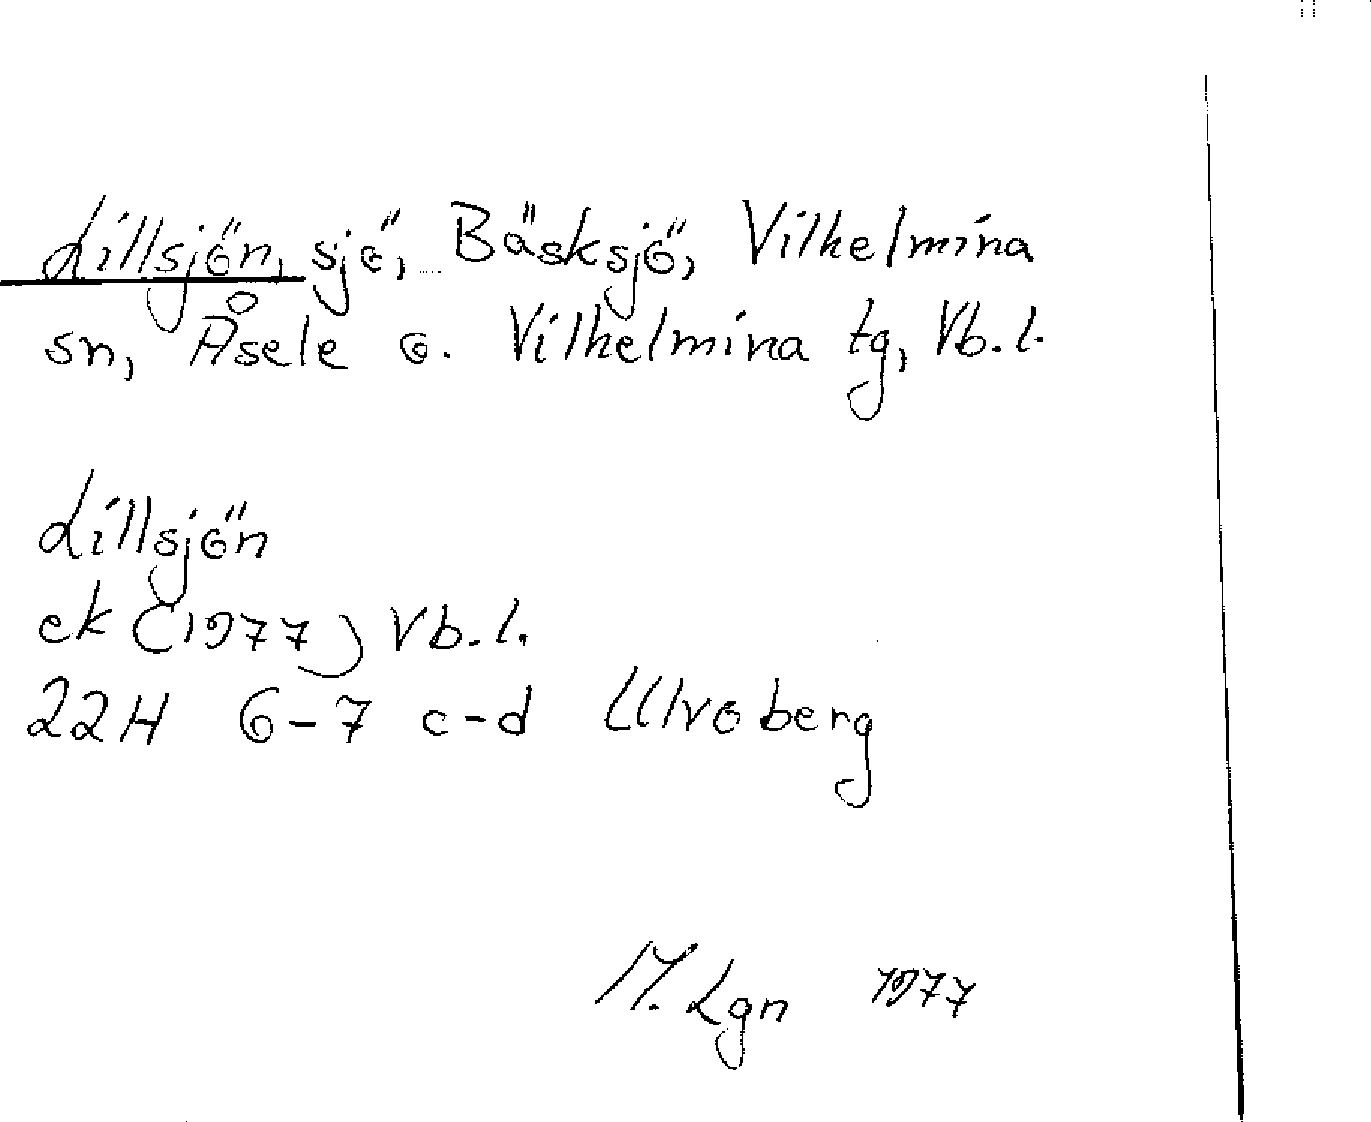 Lillsjön, sjö, Bäsksjö, Vilhelmina
sn, Åsele o. Vilhelmina tg, Vb.l.
Lillsjön
ek (1977) Vb.l.
22H 6-7 c-d Ulvoberg
M. Lgn 1977